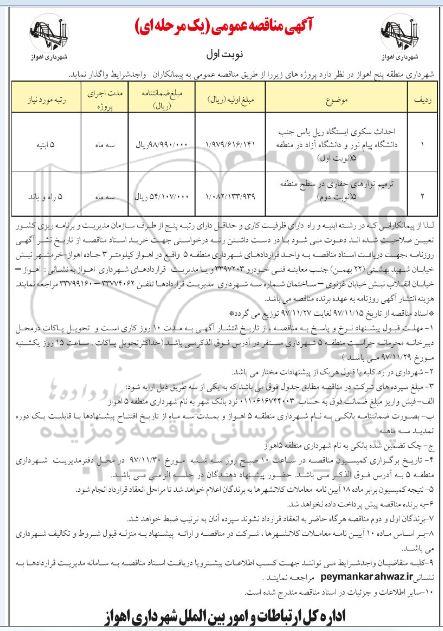 آگهی مناقصه عمومی (یک مرحله ای)
نوبت اول
شهرداری اهواز
شهرداری اهواز
شهرداری منطقه پنج اهواز در نظر دارد پروژه های زیر را از طریق مناقصه عمومی به پیمانکاران واجدشرایط واگذار نماید.
ردیف موضوع مبلغ اولیه (ریال) مبلغ ضمانتنامه (ریال) مدت اجرای پروژه رتبه مورد نیاز
۱ احداث سکوی ایستگاه ریل باس جنب دانشگاه پیام نور و دانشگاه آزاد در منطقه ۵(نوبت اول) ۱/۹۷۹/۶۱۶/۱۴۱ ۹۸/۹۹۰/۰۰۰ریال سه ماه ۵ ابنیه
۲ ترمیم نوارهای حفاری در سطح منطقه ۵(نوبت دوم) ۱/۰۸۲/۱۳۳/۹۳۹ ۵۴/۱۰۷/۰۰۰ ریال سه ماه ۵ راه و باند
لذا از پیمانکارانی که در رشته ابنیه و راه دارای ظرفیت کاری و حداقل دارای رتبه پنج از طرف سازمان مدیریت و برنامه ریزی کشور
تعیین صلاحیت شده اند دعوت می شود با در دست داشتن رسه درخواستی جهت خرید اسناد مناقصه از تاریخ نشر آگهی
روزنامه ،جهت دریافت اسناد مناقصه به واحد قراردادهای شهرداری منطقه ۵ واقع در اهواز کیلومتر ۳ جاده اهواز-خرمشهر نبش
خیابان شهید بهشتی (۲۲ بهمن) جنب معاینه فنی خودرو ۳۳۹۷۲۰۳ و یا مدیریت قراردادهای شهرداری اهواز به نشانی: اهواز –
خیابان انقلاب نبش خیابان غزنوی – ساختمان شماره سه شهرداری مدیریت قراردادها تلفن ۳۳۷۷۴۰۶۲-۳۳۷۹۹۱۶۰ مراجعه نمایند.
هزینه انتشار آگهی روزنامه به عهده برنده مناقصه می باشد.
*اسناد مناقصه از تاریخ ۹۷/۱۱/۱۵ لغایت ۹۷/۱۱/۲۷ توزیع می گردد*
۱-مهلت قبول پیشنهاد نرخ و پاسخ به مناقصه ، از تاریخ انتشار آگهی به مدت ۱۰ روز کاری است و تحویل پاکات درمحل
دبیرخانه محرمانه حراست منطقه ۵ شهرداری مستقر در آدرس فوق الذکر می باشد (حداکثر تحویل پاکات ، ساعت ۱۵ روز یکشنبه
مورخ ۹۷/۱۱/۲۹ می باشد )
۲-شهرداری در رد کلیه یا قبول هریک از پیشنهادات مختار می باشد.
۳-مبلغ سپرده های شرکت در مناقصه مطابق جدول فوق می باشد که به یکی از سه طریق ذیل ارایه شود:
الف-فیش واریز مبلغ ضمانت فوق به حساب ۰۱۱۰۶۱۶۷۴۴۰۰۳ نزد بانک شهر به نام شهرداری منطقه ۵ اهواز
ب- بصورت ضمانتنامه بانکی به نام شهرداری منطقه ۵ اهواز و بمدت سه ماه از تاریخ افتتاح پیشنهادها با قابلیت یک دوره
تمدید سه ماهه
ج-چک تضمین شده بانکی به نام شهرداری منطقه ۵ اهواز
۴-تاریخ برگزاری کمیسیون مناقصه در ساعت ۱۰ صبح روز سه شنبه مورخ ۹۷/۱۱/۳۰ در محل دفتر مدیریت شهرداری
منطقه ۵ به آدرس فوق الذکر می باشد. حضور پیشنهاد دهندگان در جلسه الزامی می باشد.
۵-نتیجه کمیسیون برابر ماده ۱۸ آیین نامه معاملات کلانشهرها به برندگان اعلام خواهد شد تا مراحل انعقاد قرارداد انجام شود.
۶-به برنده مناقصه پیش پرداخت داده نخواهد شد.
۷-برندگان اول و دوم مناقصه هرگاه حاضر به انعقاد قرارداد نشوند سپرده آنان به ترتیب ضبط خواهد شد.
۸-بر اساس ماده ۱۰ آیین نامه معاملات کلانشهرها ، شرکت در مناقصه و ارائه پیشنهاد به منزله قبول شروط و تکالیف شهرداری
می باشد.
۹-کلیه متقاضیان واجدشرایط می توانند جهت کسب اطلاعات بیشتر و یا دریافت اسناد مناقصه به سامانه مدیریت قراردادها به
نشانی peymankar.ahwaz.ir مراجعه نمایند .
۱۰-سایر اطلاعات و جزئیات در اسناد مناقصه مندرج شده است.
اداره کل ارتباطات و امور بین الملل شهرداری اهواز